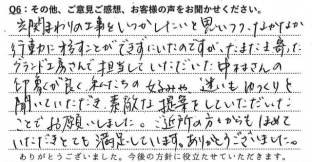 Q6：その他、ご意見ご感想、お客様の声をお聞かせください。
玄関まわりの工事をいつかしたいと思いつつ、なかなか
行動に移すことができずにいたのですが、たまたま寄った
グランド工房さんで担当していただいた中村さんの
印象が良く、私たちの好みや、迷いもゆっくりと
聞いていただき、素敵な提案をしていただいた
ことでお願いしました。ご近所の方々からもほめて
いただきとても満足しています。ありがとうございました。
ありがとうございました。今後の方針に役立たせていただきます。